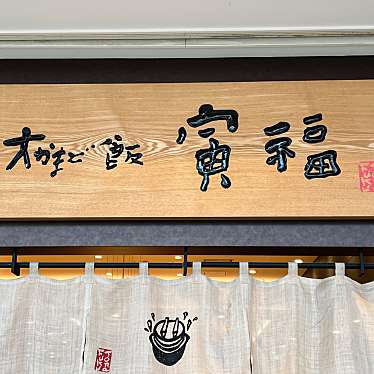 おかまど飯 寅福